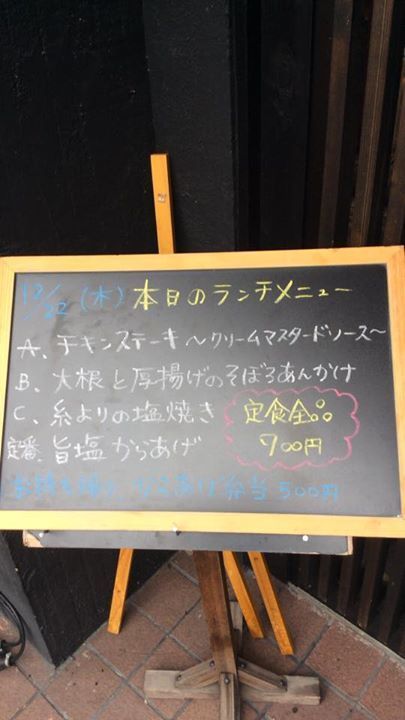 12/22 (木) 本日のランチメニュー
A、チキンステーキ〜クリームマスタードソース〜
B、大根と厚揚げのそぼろあんかけ
C、糸よりの塩焼き
定番、旨塩からあげ
定食全品
700円
お持ち帰り からあげ弁当 500円